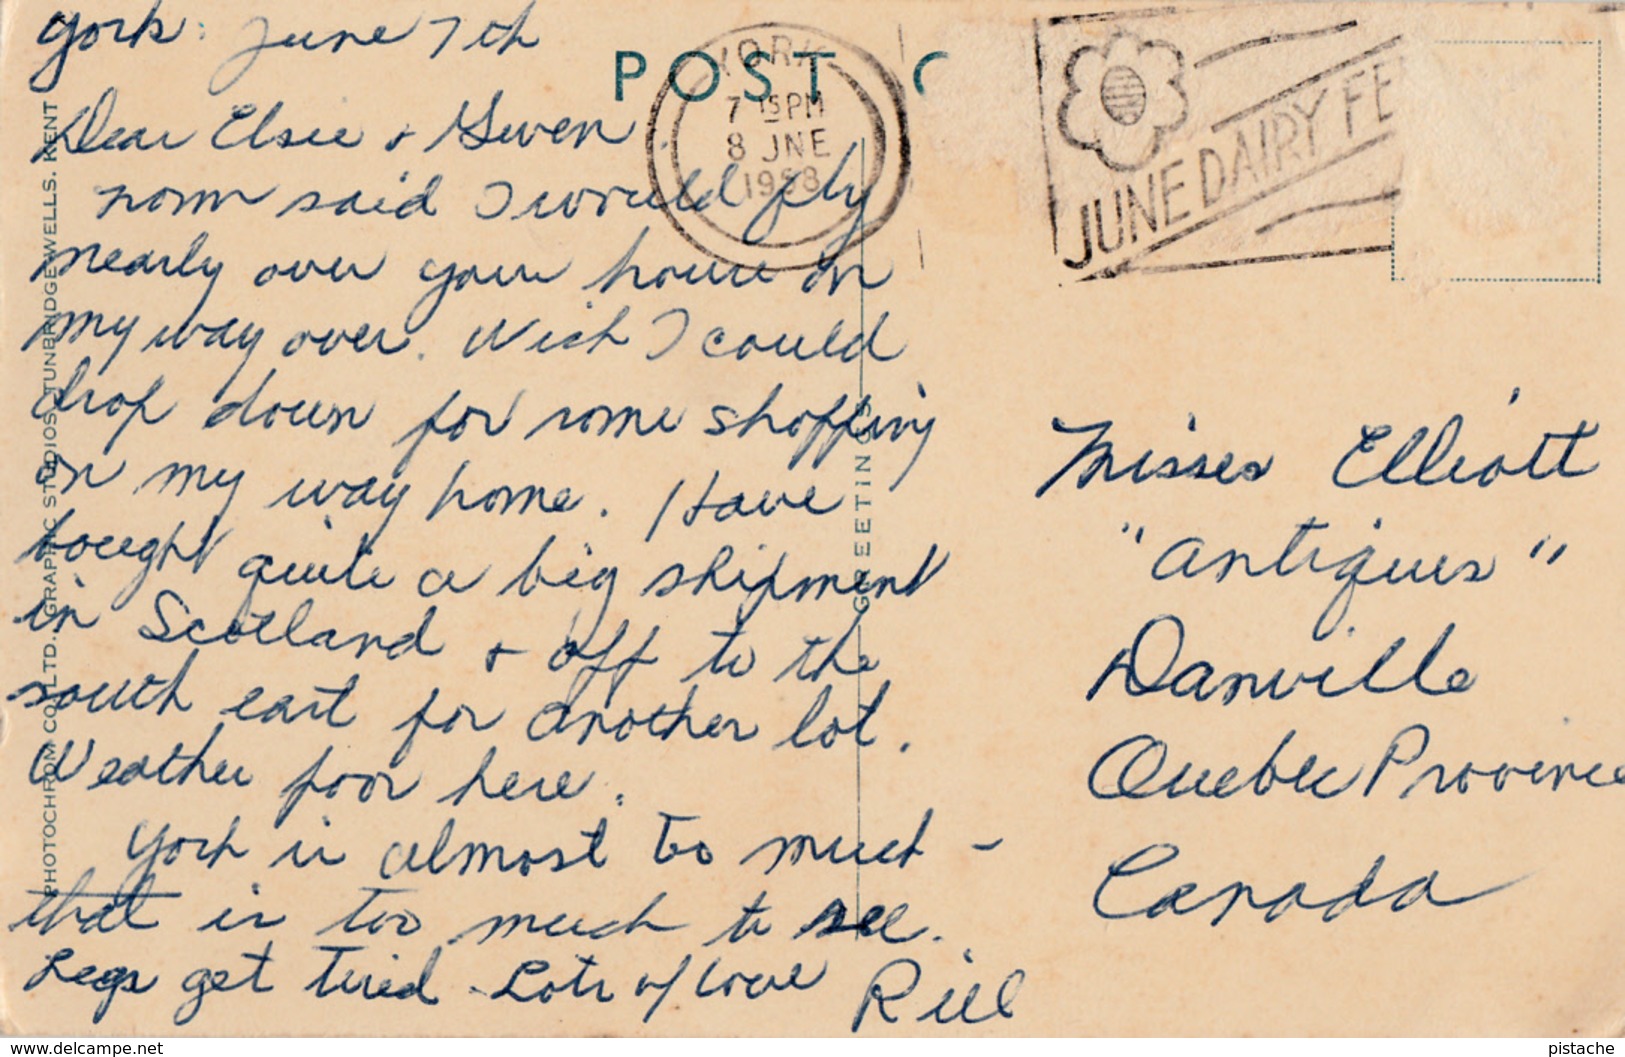 York: June 7th
Dear Elsie & Gwen.
Norm said I would fly
nearly over your house on
my way over. Wish I could
drop down for some shopping
on my way home. Have
bought quite a big shipment
in Scotland & off to the
south east for another lot.
Weather poor here.
York is almost too much -
that is too much to see.
Legs get tired. Lots of love
POST C
YORK
7 15 PM
8 JNE
1958
JUNE DAIRY FE
Misses Elliott
"Antiques"
Danville
Quebec Province
Canada
GREETINGS
PHOTOCHROM CO. LTD. GRAPHIC STUDIOS, TUNBRIDGE WELLS, KENT
www.delcampe.net
pistache